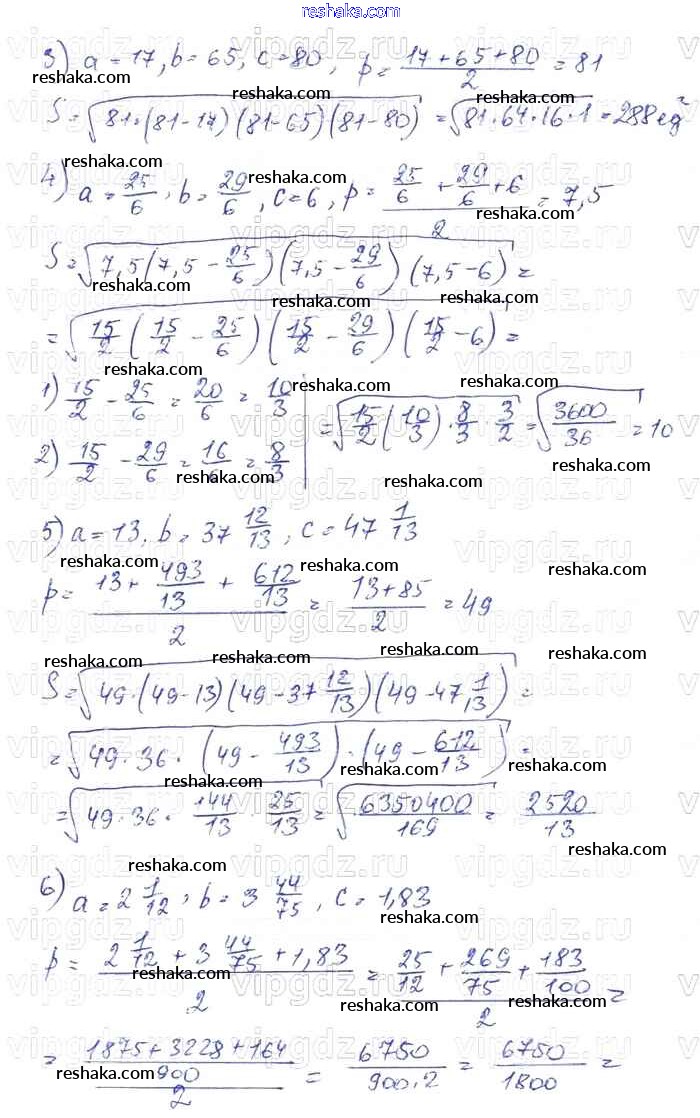 reshaka.com
3) a = 17, b = 65, c = 80, p = (17 + 65 + 80)/2 = 81
S = √(81·(81-17)(81-65)(81-80)) = √(81·64·16·1) = 288 ед²
4) a = 25/6, b = 29/6, c = 6, p = (25/6 + 29/6 + 6)/2 = 7,5
S = √(7,5(7,5 - 25/6)(7,5 - 29/6)(7,5 - 6)) =
= √(15/2 (15/2 - 25/6)(15/2 - 29/6)(15/2 - 6)) =
1) 15/2 - 25/6 = 20/6 = 10/3 | = √(15/2 (10/3)·8/3·3/2) = √(3600/36) = 10
2) 15/2 - 29/6 = 16/6 = 8/3
5) a = 13, b = 37 12/13, c = 47 1/13
p = (13 + 493/13 + 612/13)/2 = (13 + 85)/2 = 49
S = √(49·(49-13)(49-37 12/13)(49-47 1/13)) =
= √(49·36·(49 - 493/13)·(49 - 612/13)) =
= √(49·36·144/13·25/13) = √(6350400/169) = 2520/13
6) a = 2 1/12, b = 3 44/75, c = 1,83
p = (2 1/12 + 3 44/75 + 1,83)/2 = (25/12 + 269/75 + 183/100)/2 =
= ((1875 + 3228 + 164)/900)/2 = 6750/(900·2) = 6750/1800 =